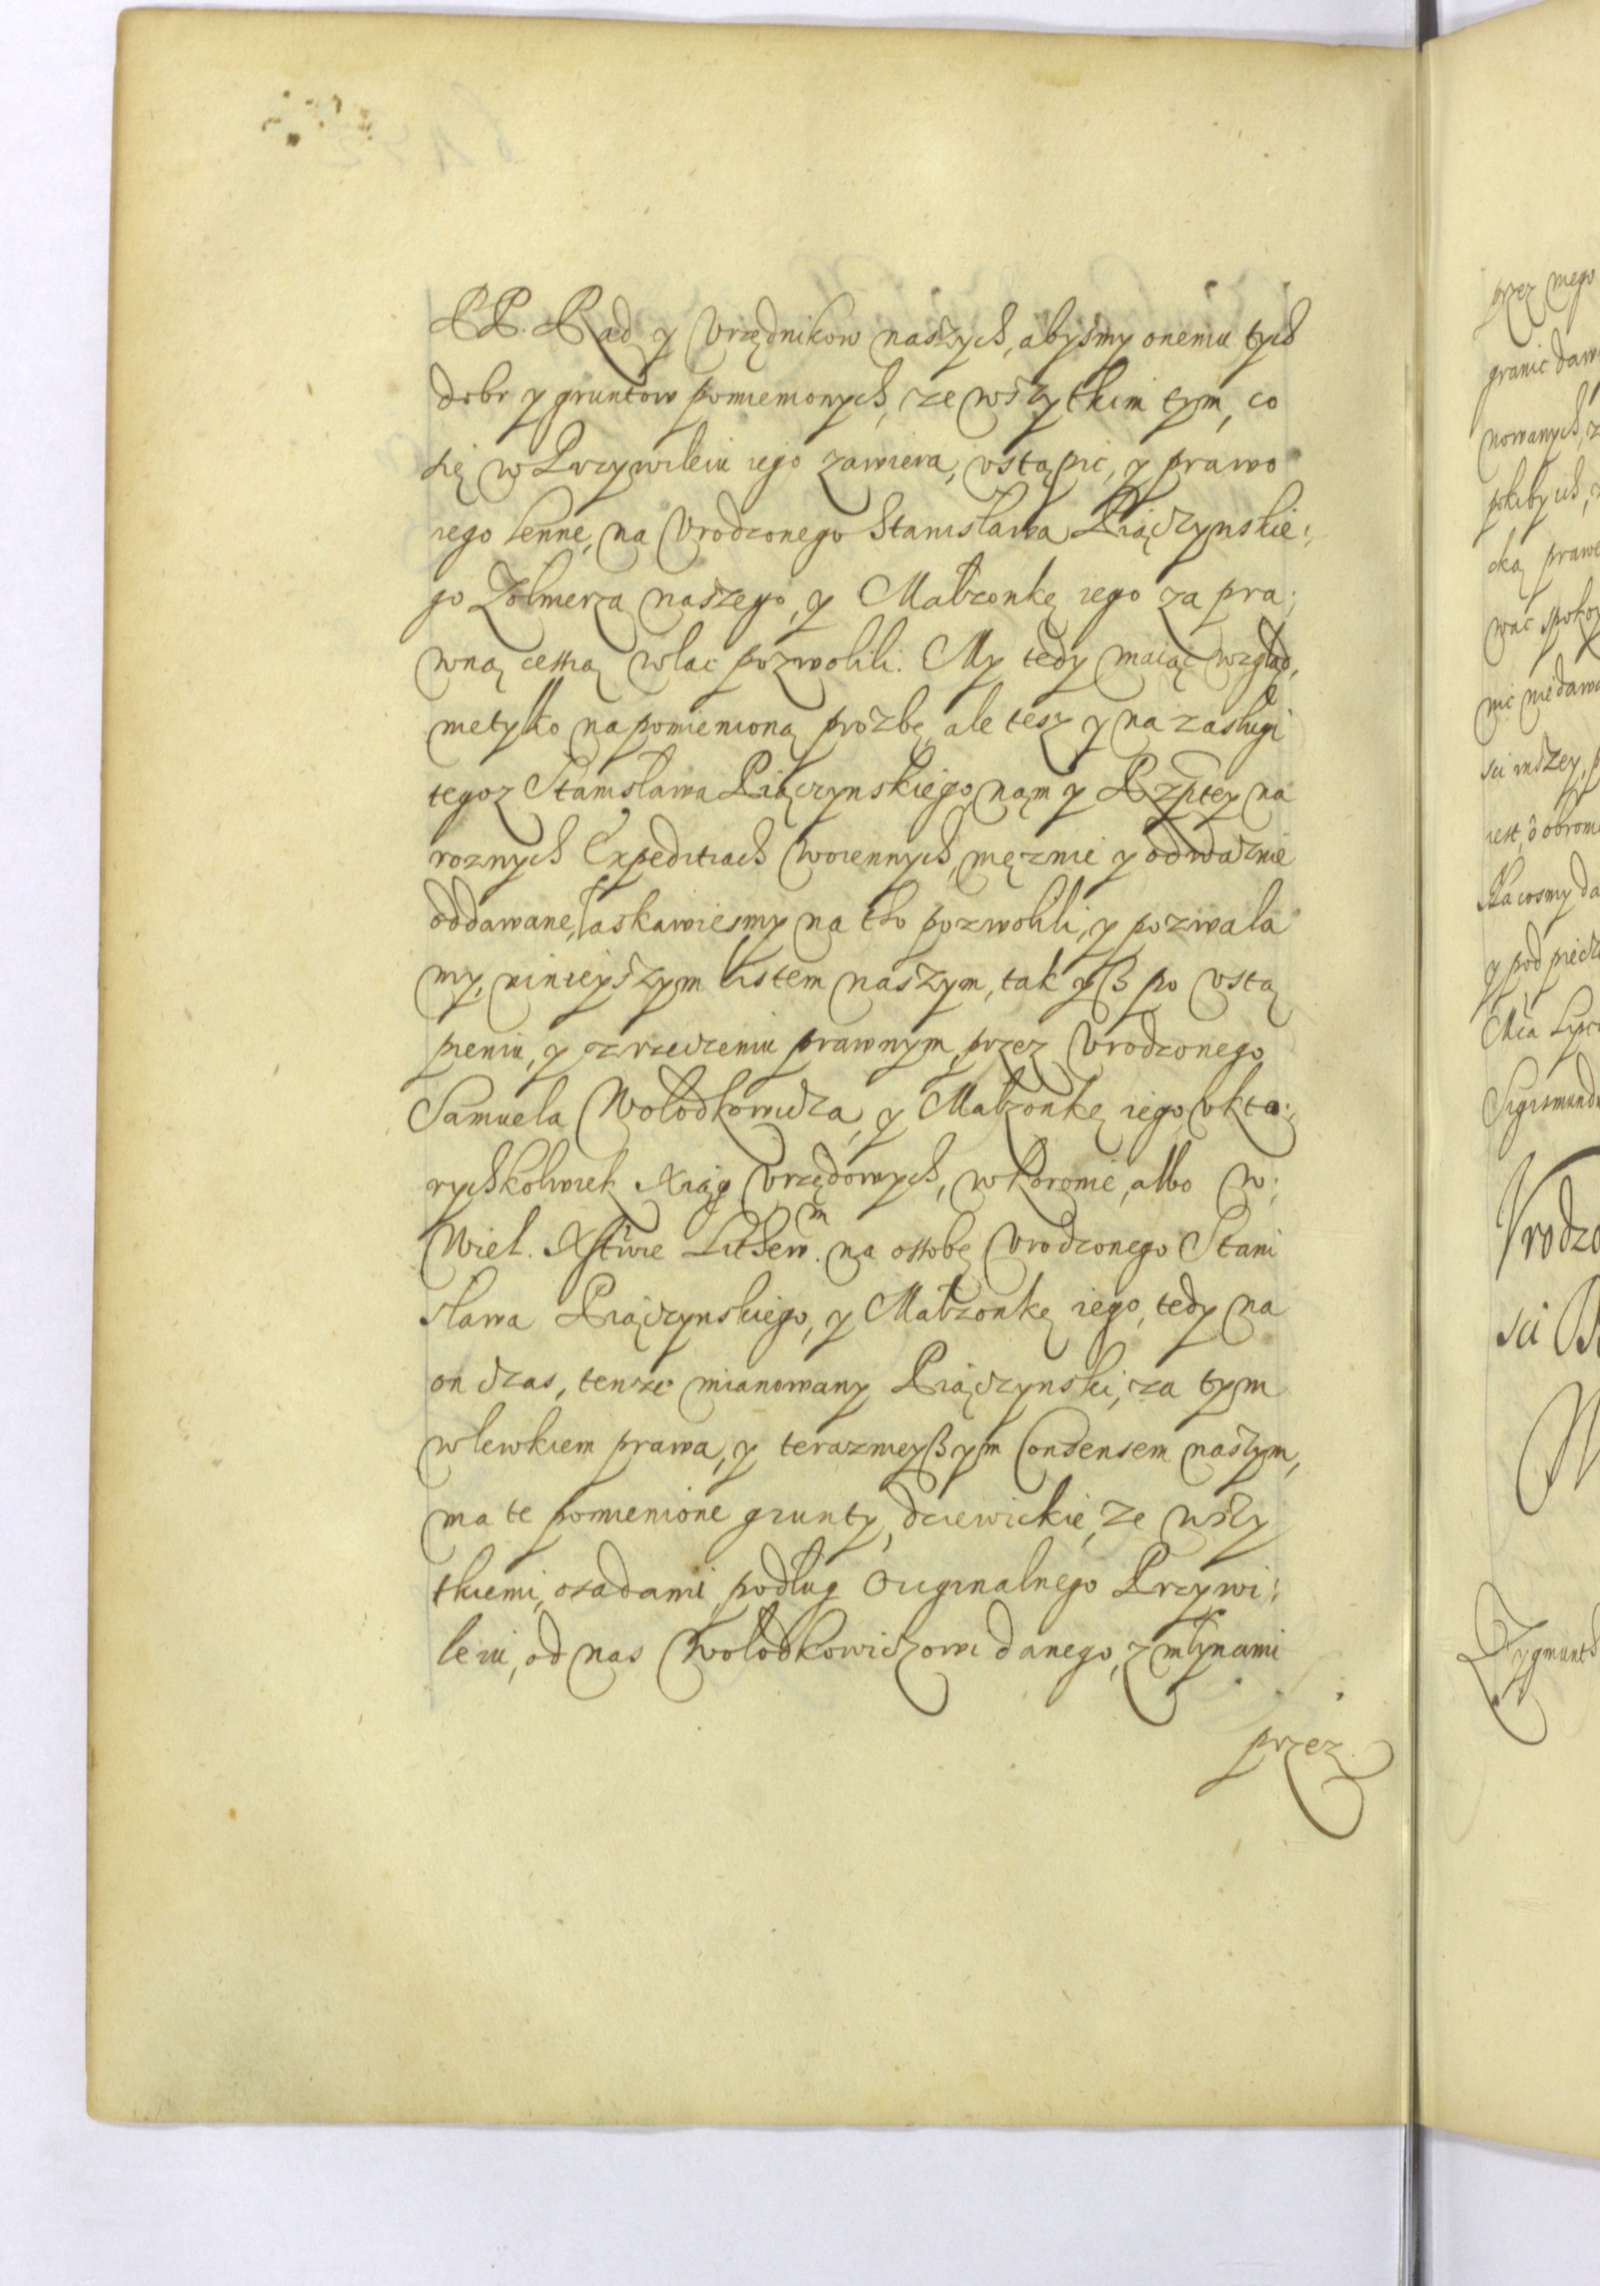 PP. Rad y Vrzędnikow naszych, abysmy onemu tych
dobr y gruntow pomienionych, ze wszytkim tym, co
się w Przywileiu iego zawiera, vstąpic, y prawo
iego lenne, na Vrodzonego Stanisława Piączynskie:
go Zołnierza naszego, y Małzonkę iego za pra:
wną cessią wlac pozwolili. My tedy maiąc wzgląd,
nietylko na pomienioną prozbę, ale tesz y na zasługi
tegoz Stanisława Piączynskiego nąm y Rzptey na
roznych Expeditiach woiennych, męznie y odwaznie
oddawane, łaskawiesmy na tho pozwolili, y pozwala
my, ninieyszym listem naszym, tak yß po vstą
pieniu, y zrzeczeniu prawnym, przez Vrodzonego
Samuela Wołodkowicza, y Małzonkę iego, vkto:
rychkolwiek Xiąg Vrzędowych, w Koronie, albo w:
Wiel. Xstwie Lithew.m na ossobę Vrodzonego Stani
sława Piączynskiego, y Małzonkę iego, tedy na
on czas, tenze mianowany Piączynski, za tym
wlewkiem prawa, y terazniejßym Consensem naszym,
ma te pomienione grunty, dziewickie, ze wszy
tkiemi, osadami, podług Originalnego Przywi:
leiu, od nas Wołodkowiczowi danego, z młynami
przez
przez niego
granic daw
nowanych, z
pokiby ich, z
cką prawe
wac spokoy
nic niedawa
sci inszey, p
iest, o obrome
Na co smy da
y pod pieczę
Mca Lypc
Sigismundu
Vrodzo
sci B
W
Zygmunth